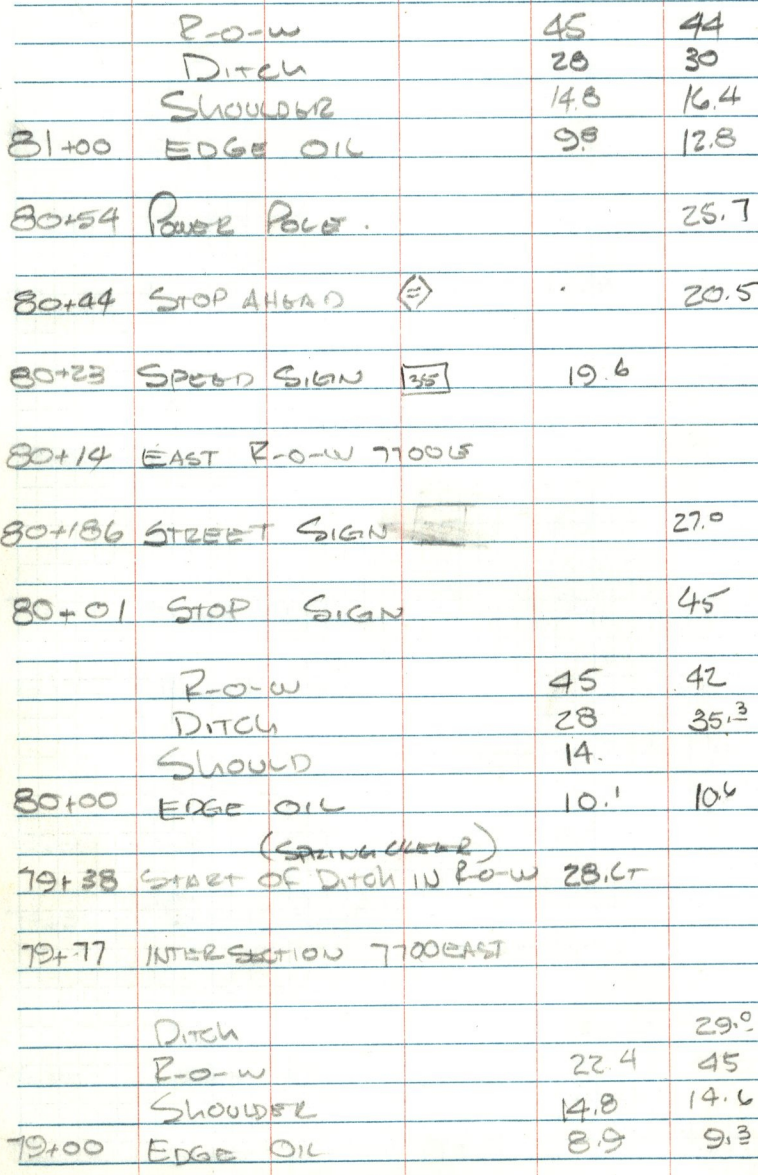 R-O-W 45 44
DITCH 28 30
SHOULDER 14.8 16.4
81+00 EDGE OIL 9.8 12.8
80+54 POWER POLE. 25.7
80+44 STOP AHEAD 20.5
80+23 SPEED SIGN 35 19.6
80+14 EAST R-O-W 7700E
80+186 STREET SIGN 27.0
80+01 STOP SIGN 45
R-O-W 45 42
DITCH 28 35.3
SHOULD 14.
80+00 EDGE OIL 10.1 10.6
(SPRING CREEK)
79+38 START OF DITCH IN R-O-W 28.LT
79+77 INTERSECTION 7700EAST
DITCH 29.0
R-O-W 22.4 45
SHOULDER 14.8 14.6
79+00 EDGE OIL 8.9 9.3